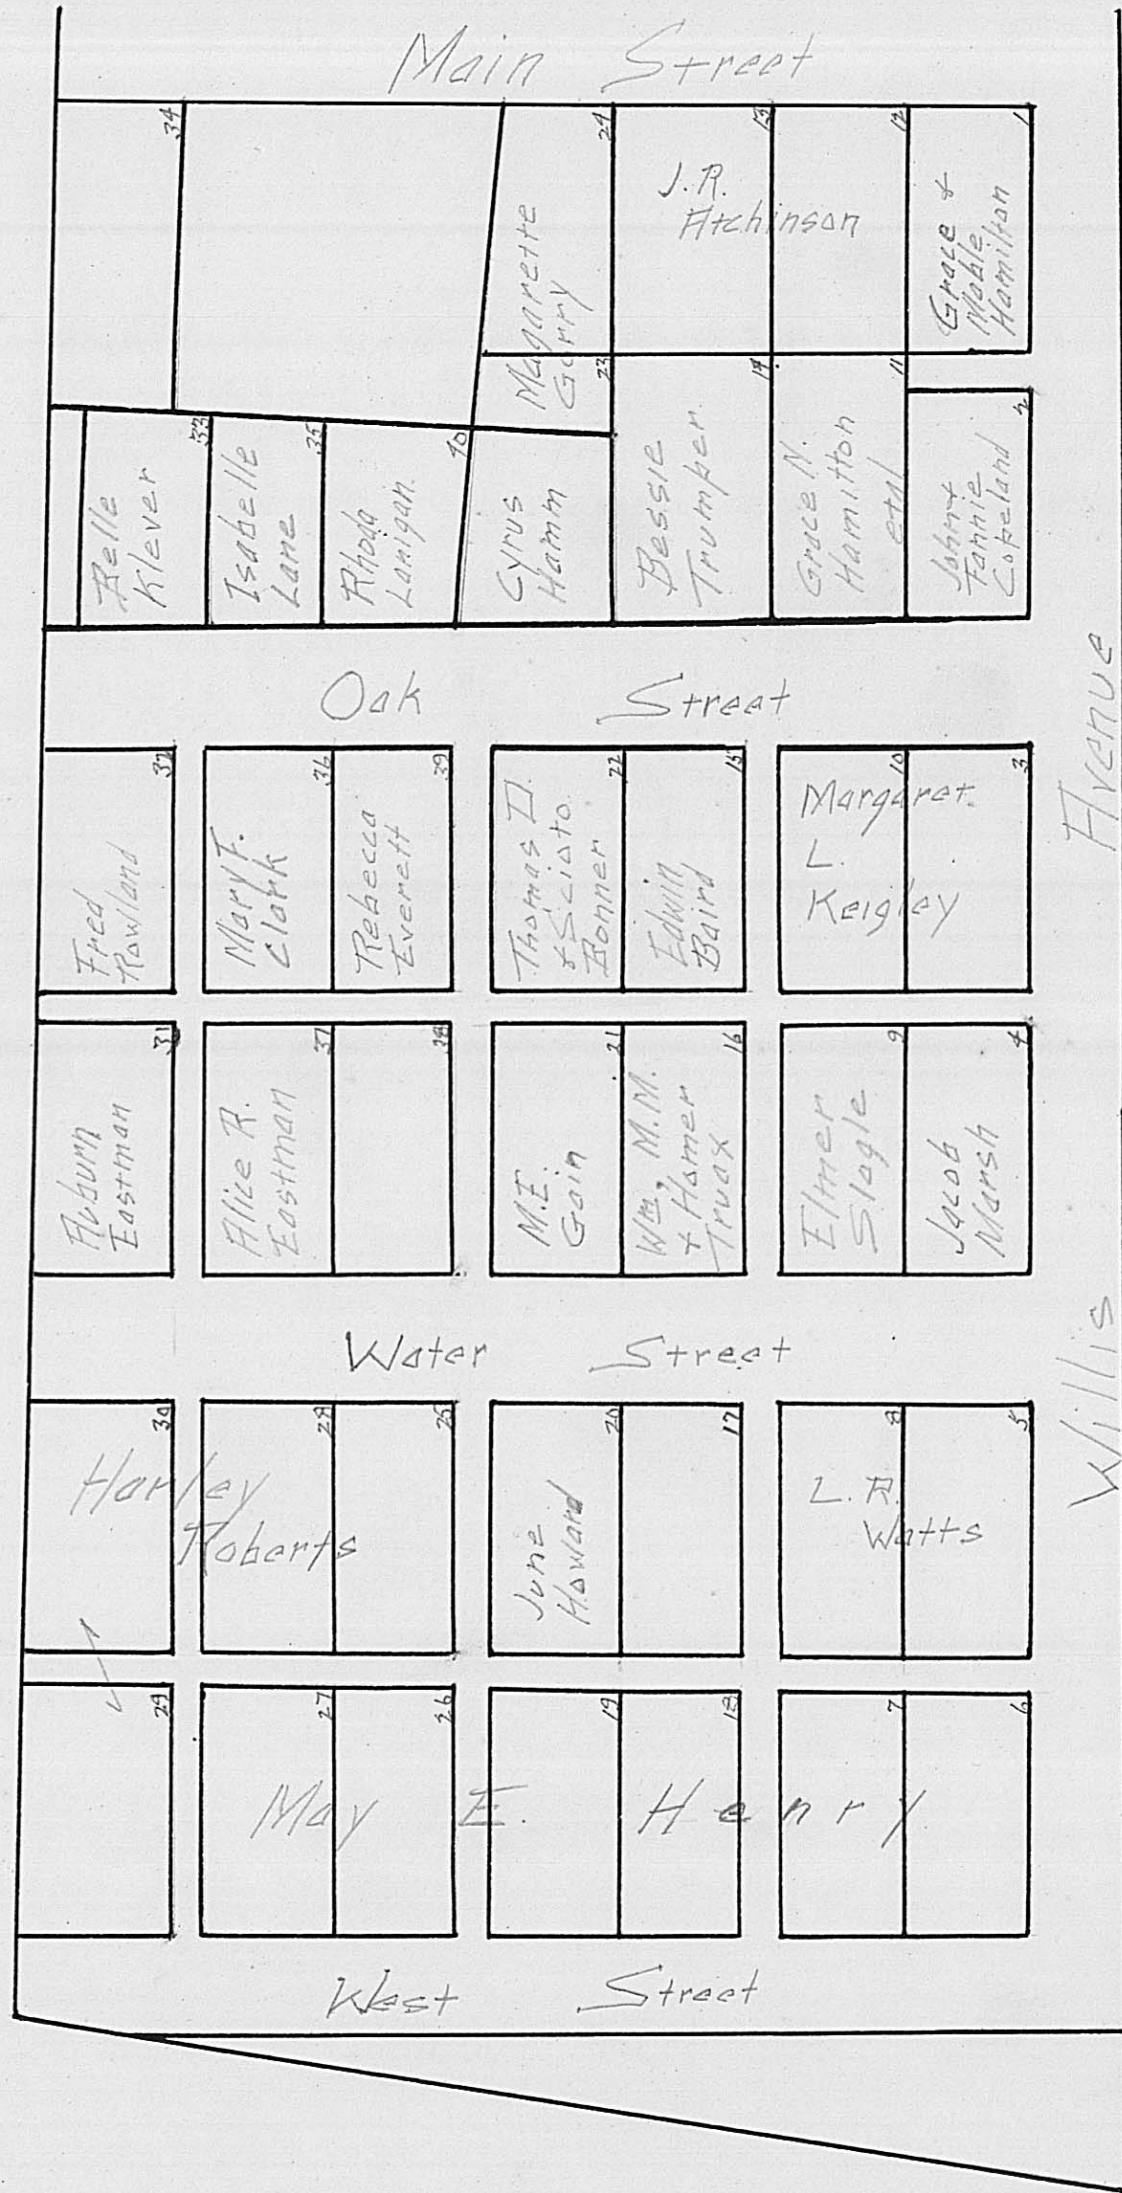 Main Street
34
24
13
12
1
J.R.
Atchinson
Grace &
Mable
Hamilton
Magarette
Gorry
23
14
11
2
33
35
40
Belle
Klever
Isabelle
Lane
Rhoda
Lanigan
Cyrus
Hamm
Bessie
Trumper
Grace N.
Hamilton
etal
John &
Fannie
Copeland
Oak Street
32
36
39
22
15
10
3
Fred
Rowland
Mary F.
Clark
Rebecca
Everett
Thomas D.
& Scioto
Bonner
Edwin
Baird
Margaret
L.
Keigley
31
37
38
21
16
9
4
Auburn
Eastman
Alice R.
Eastman
M.E.
Gain
Wm. M.M.
& Homer
Truax
Elmer
Slagle
Jacob
Marsh
Water Street
30
28
25
20
17
8
5
Harley
Roberts
June
Howard
L. R.
Watts
29
27
26
19
18
7
6
May E. Henry
West Street
Willis Avenue